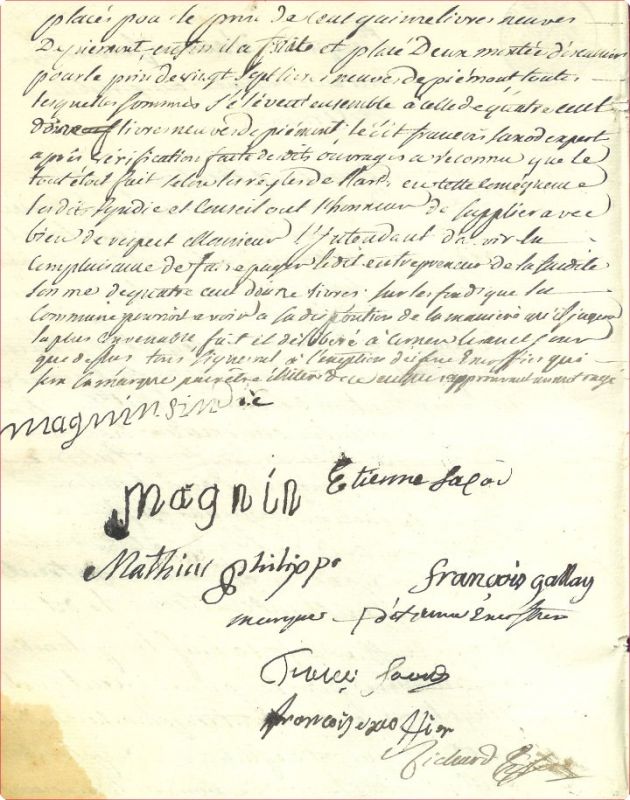 placés pour le prix de cent quinze livres neuves
De piémont enfin il a traité et placé Deux montée d'escaiers
pour le prix de vingt sept livres neuves de piémont toutes
lesquelles sommes s'élévent ensemble à celle de quatre cent
douze livres neuves de piémont le dit francois saxod expert
après vérification faite desdits ouvrages a reconnu que le
tout étoit fait selon les règles de l'art, en cette conséquence
lesdits syndic et Conseil ont l'honneur de supplier avec
bien de respect Monsieur l'Intendant d'avoir la
Complaisance de faire payer ledit entrepreneur de la susdite
somme de quatre cent douze livres sur les fonds que la
Commune pourroit avoir à sa disposition de la manière qu'il jugera
la plus convenable fait et délibéré à
que dessus tous signeront à l'exception de qui
fera sa marque pour être illitéré
magnin sindic
magnin Etienne saxod
Mathieu philippe françois gallay
marque d'étienne
françois
Richard